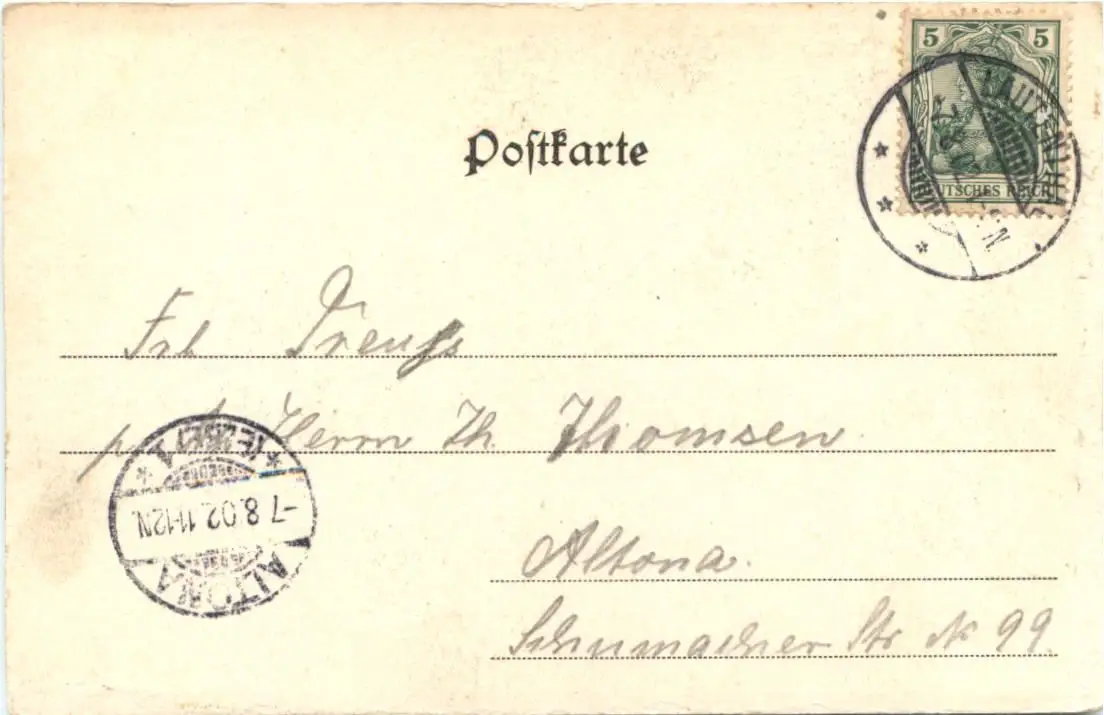 5 5
DEUTSCHES REICH
LAUTENTHAL
Postkarte
Frl Preuß
p. A. Herrn Th. Thomsen
Altona.
Schumacher Str № 99.
ALTONA
-7.8.02.11-12N.
* (ELBE) 1 *